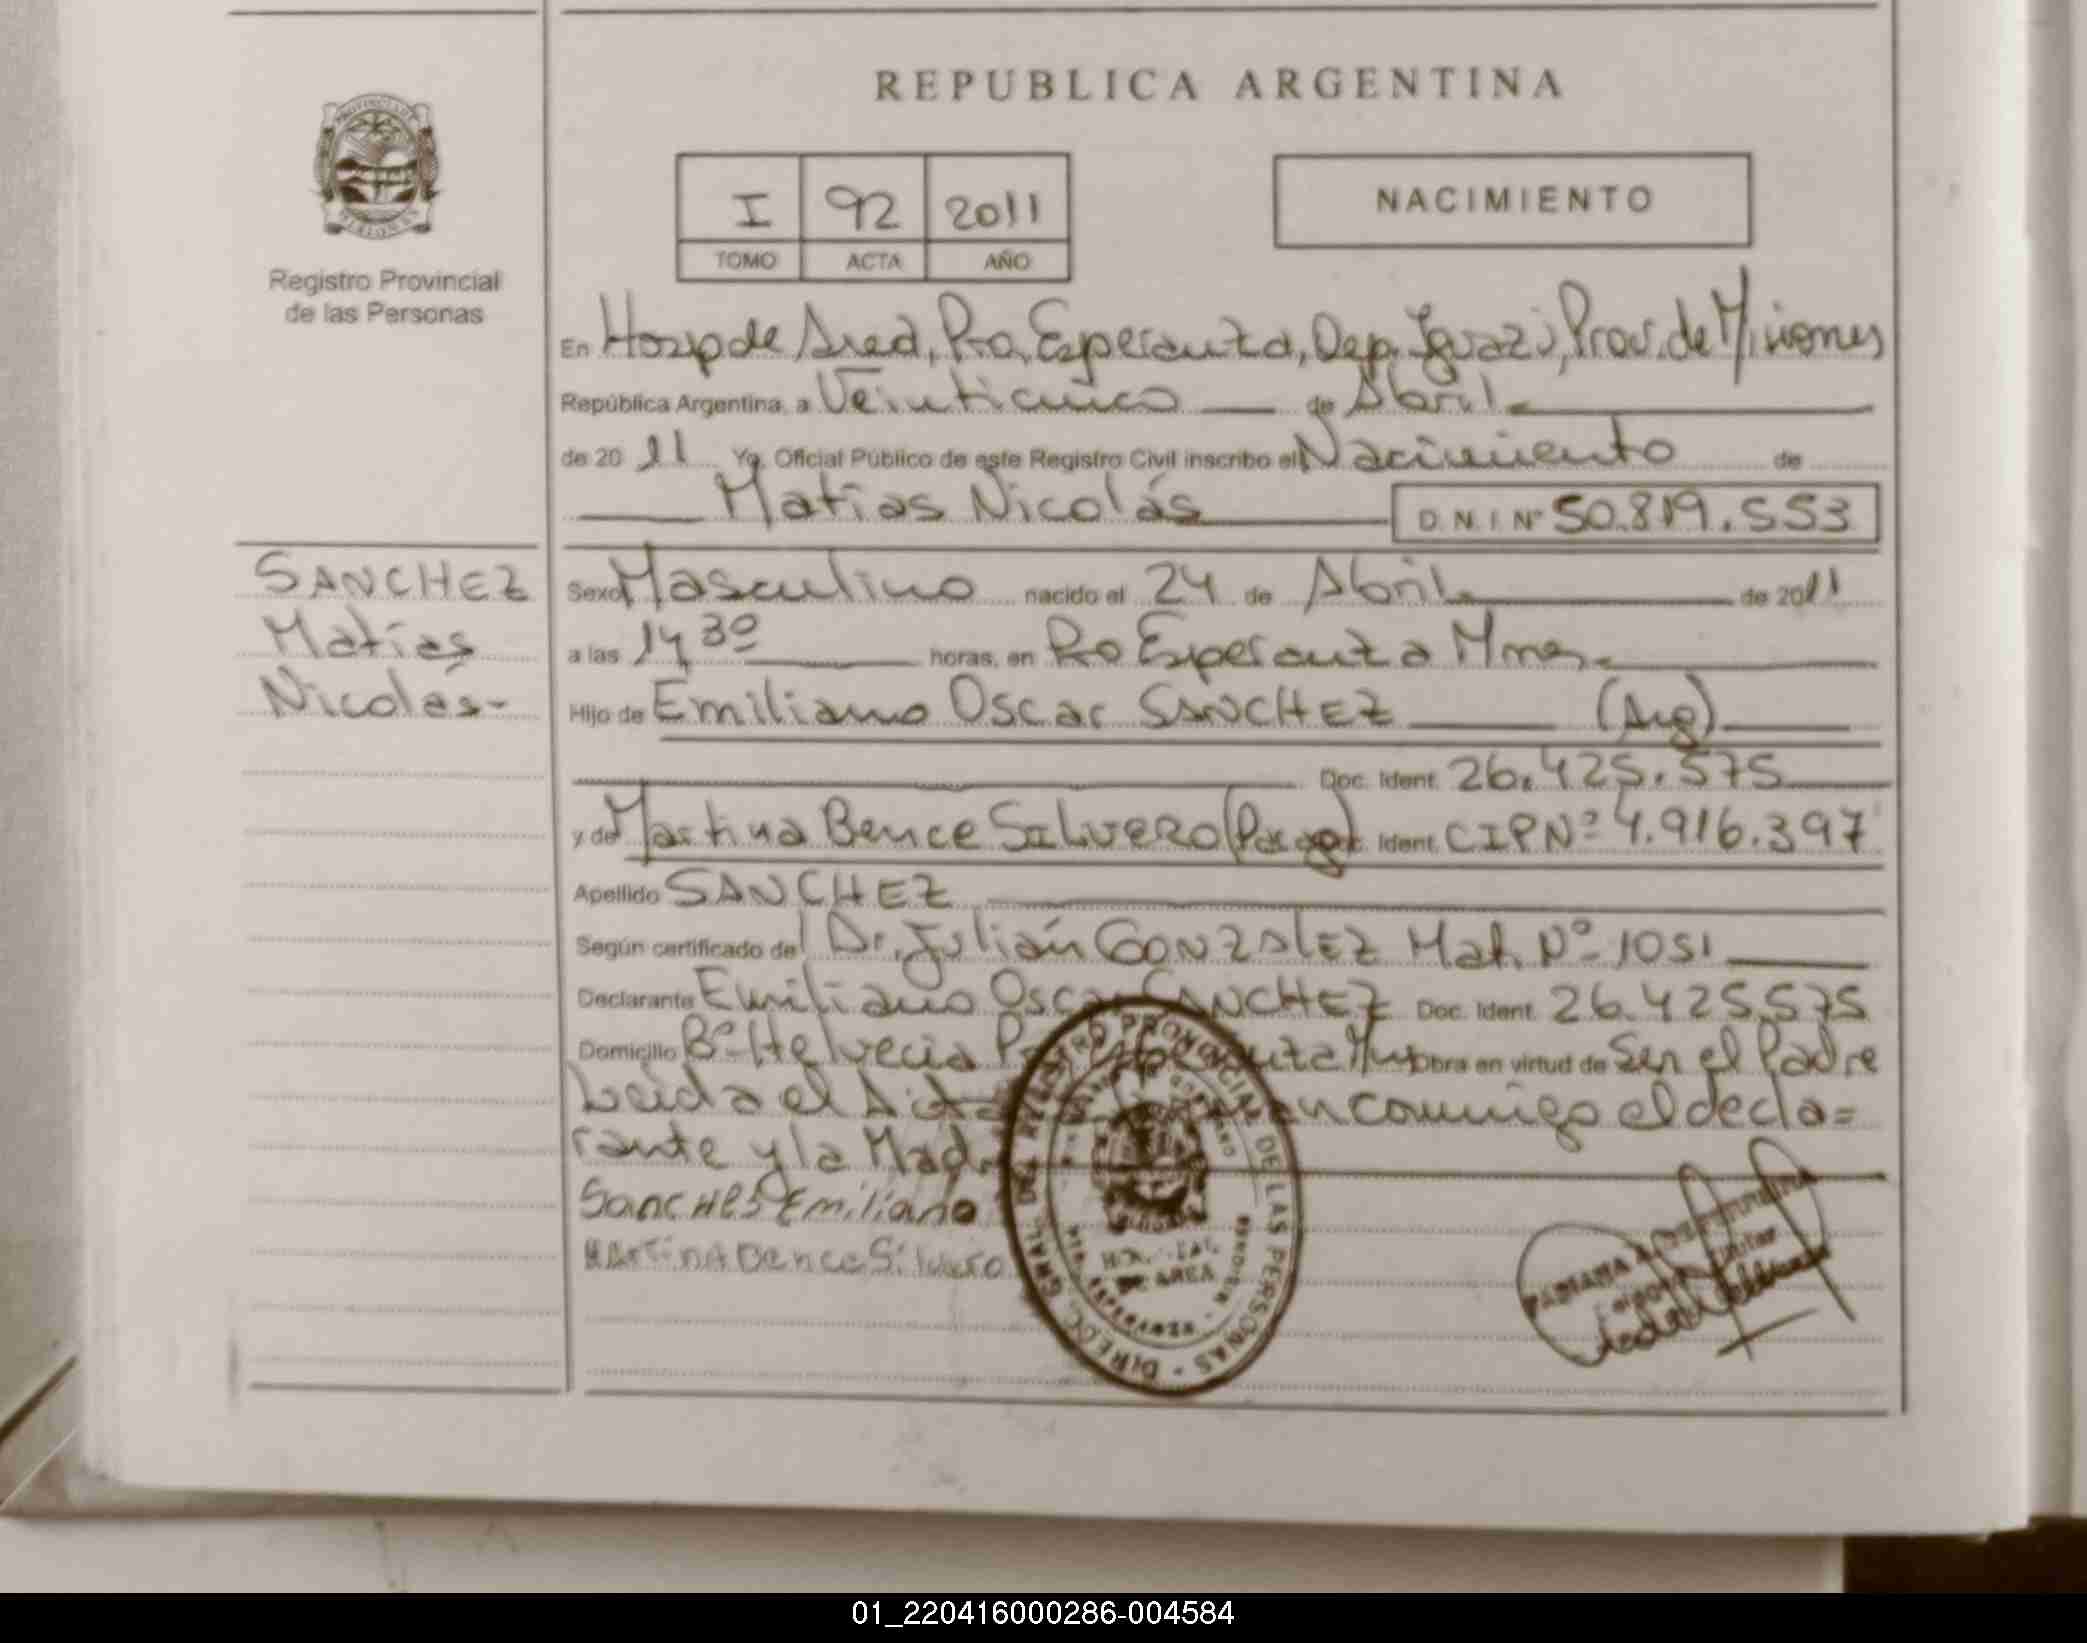 REPUBLICA ARGENTINA
I 92 2011
TOMO ACTA AÑO
NACIMIENTO
Registro Provincial
de las Personas
En Hosp de Area, Pto. Esperanza, Dep. Iguazú, Prov. de Misiones
República Argentina, a Veinticinco de Abril
de 2011 Yo, Oficial Público de este Registro Civil inscribo el Nacimiento de
Matias Nicolás D.N.I. Nº 50.819.553
SANCHEZ
Matías
Nicolas-
Sexo Masculino nacido el 24 de Abril de 2011
a las 14,30 horas, en Pto Esperanza Mnes.
Hijo de Emiliano Oscar SANCHEZ (Arg)
Doc. Ident. 26.425.575
y de Martina Bence SILVERO (Parag) Ident. CIPNº 4.916.397
Apellido SANCHEZ
Según certificado del Dr. Julián GONZALEZ Mat. Nº 1051
Declarante Emiliano Oscar SANCHEZ Doc. Ident. 26.425.575
Domicilio Bº Helvecia Pto Esperanza Mnes Obra en virtud de Ser el Padre
Leida el Acta conmigo el decla=
rante y la Madre
Sanches Emiliano
MartinA Bence Silvero
DIRECC. GRAL. DEL REGISTRO PROVINCIAL DE LAS PERSONAS
DE AREA
FABIANA
01_220416000286-004584